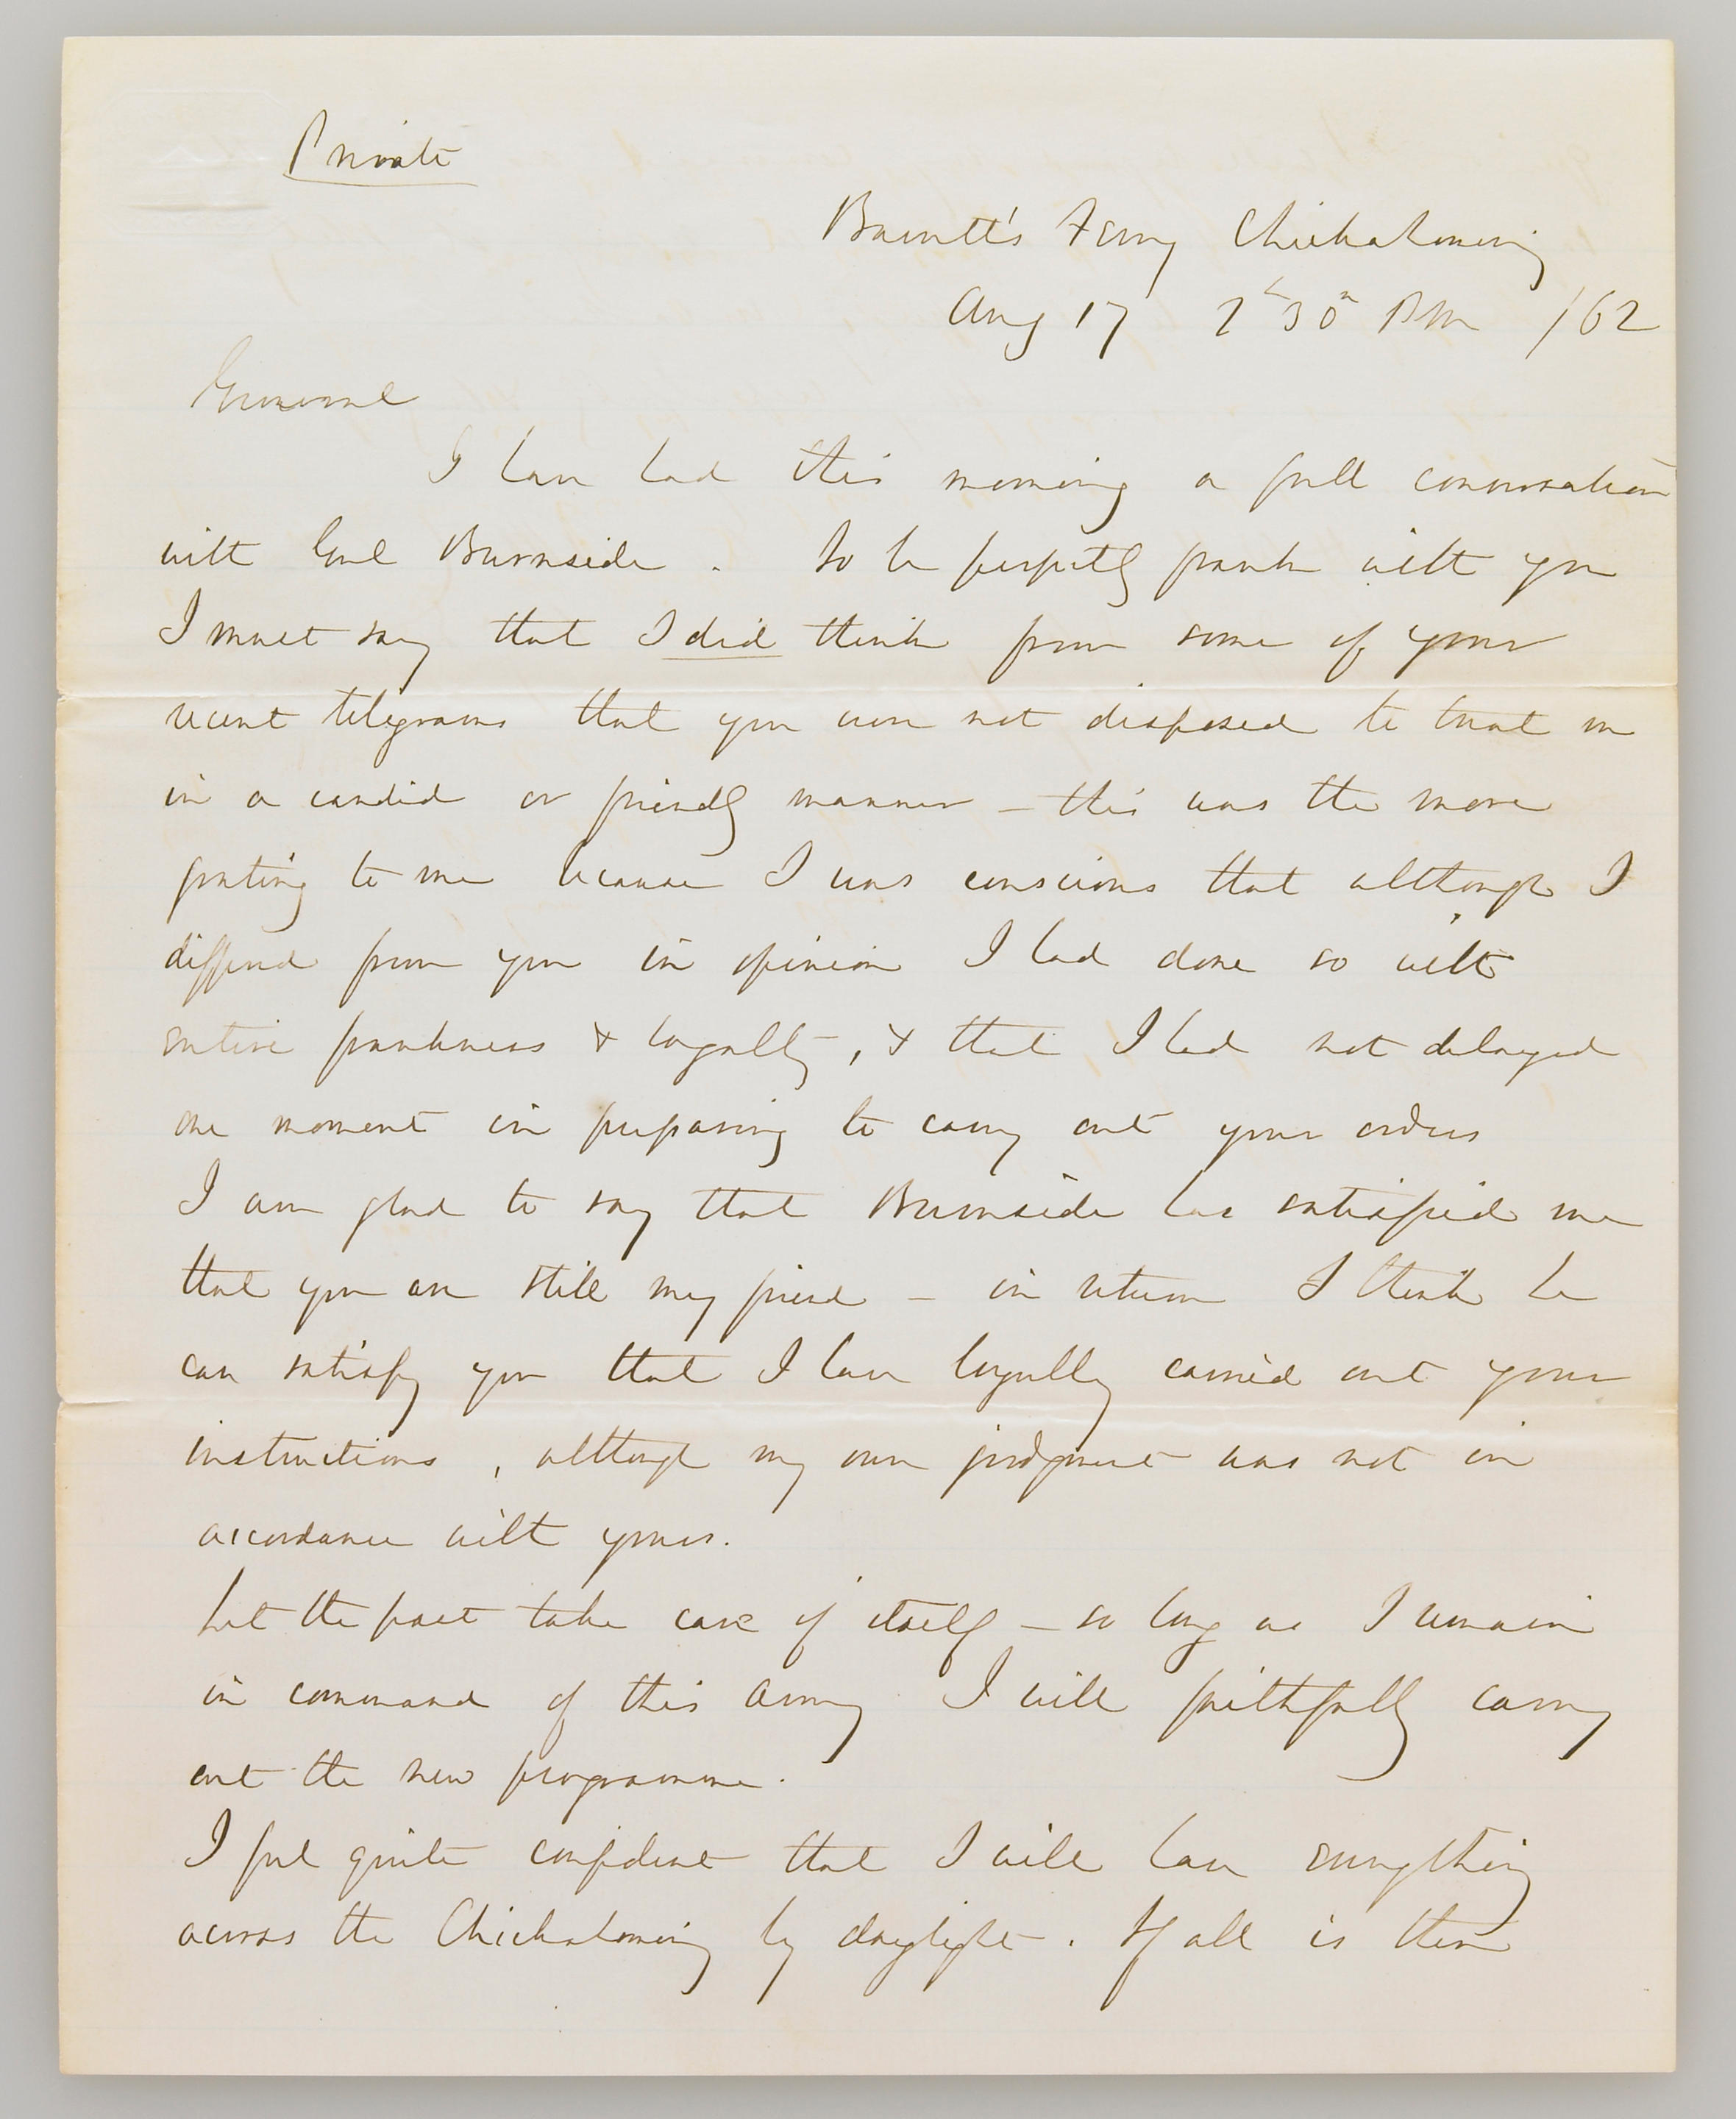 Private
Barrett's Ferry Chickahominy
Aug 17 2h 30m PM /62
General
I have had this morning a full conversation
with Genl Burnside. To be perfectly frank with you
I must say that I did think from some of your
recent telegrams that you were not disposed to treat me
in a candid or friendly manner – this was the more
grating to me because I was conscious that although I
differed from you in opinion I had done so with
entire frankness & loyalty, & that I had not delayed
one moment in preparing to carry out your orders
I am glad to say that Burnside has satisfied me
that you are still my friend – in return I think he
can satisfy you that I have loyally carried out your
instructions, although my own judgment was not in
accordance with yours.
Let the past take care of itself – so long as I remain
in command of this Army I will faithfully carry
out the new programme.
I feel quite confident that I will have everything
across the Chickahominy by daylight. If all is then